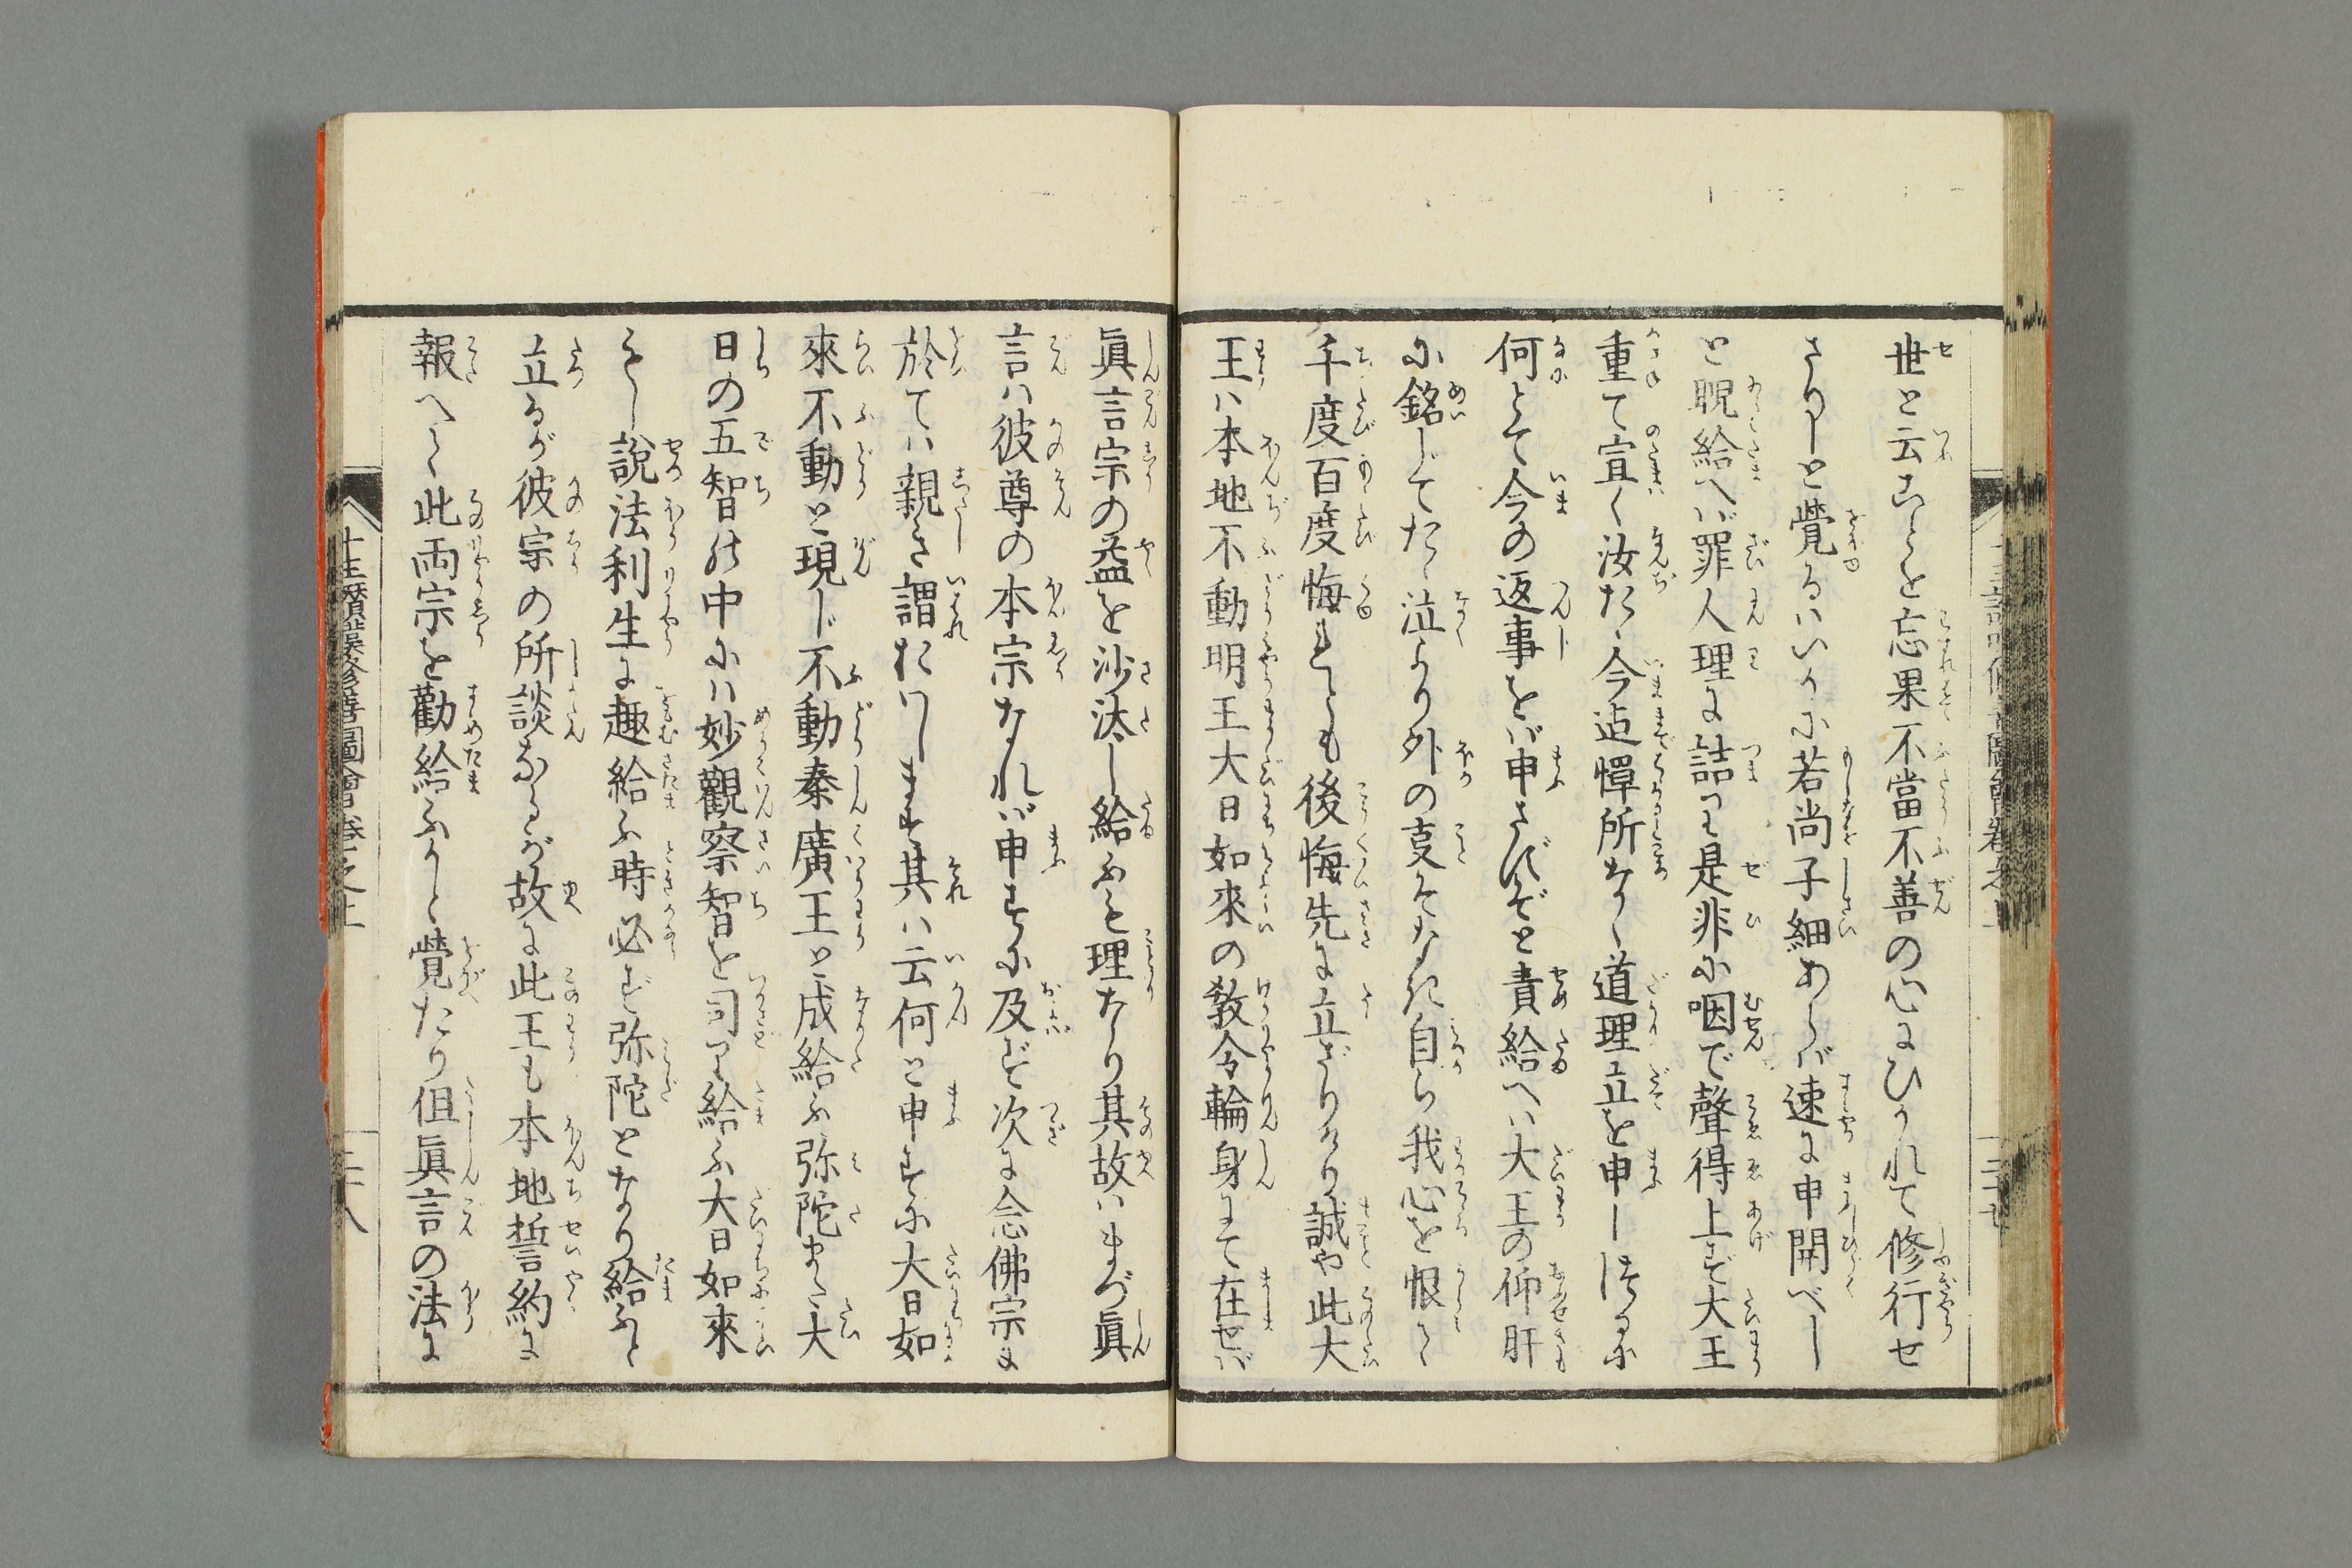 世と云ことを忘果不當不善の心にひかれて修行せ
さりしと覺るいかに若尚子細あらば速に申開べし
と睨給へば罪人理に詰りて是非に咽で聲得上ず大王
重て宣く汝たゞ今迠憚所なく道理立を申しつるに
何とて今の返事をば申さゞるぞと責給へば大王の仰肝
に銘じてたゞ泣より外の叓ぞなき自ら我心を恨て
千度百度悔れども後悔先に立ざりけり誠や此大
王は本地不動明王大日如來の敎令輪身にて在せば
眞言宗の益を沙汰し給ふも理なり其故はまづ眞
言は彼尊の本宗なれば申すに及ず次に念佛宗に
於ては親き謂おはします其は云何と申すに大日如
來不動と現じ不動秦廣王と成給ふ弥陀また大
日の五智の中には妙觀察智を司り給ふ大日如來
もし說法利生に趣給ふ時必ず弥陀となり給ふと
立るが彼宗の所談なるが故に此王も本地誓約に
報へて此兩宗を勸給ふかと覺たり但眞言の法に
十王讃嘆修善圖會卷之上
二十八